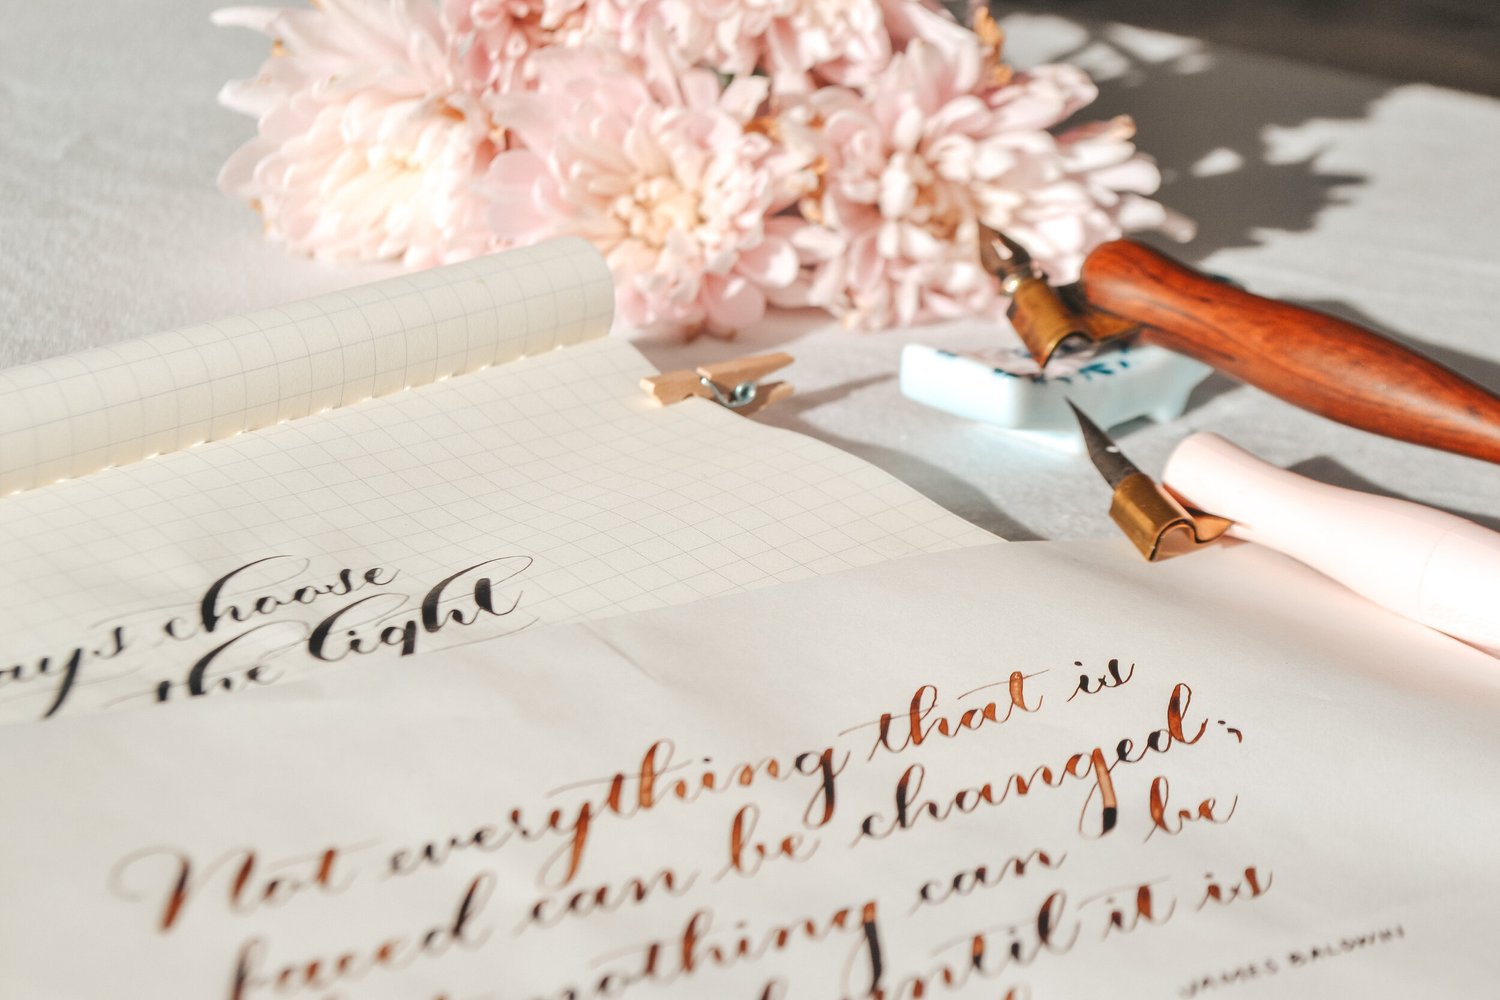 choose
the light
Not everything that is
faced can be changed;
nothing can be
until it is
JAMES BALDWIN